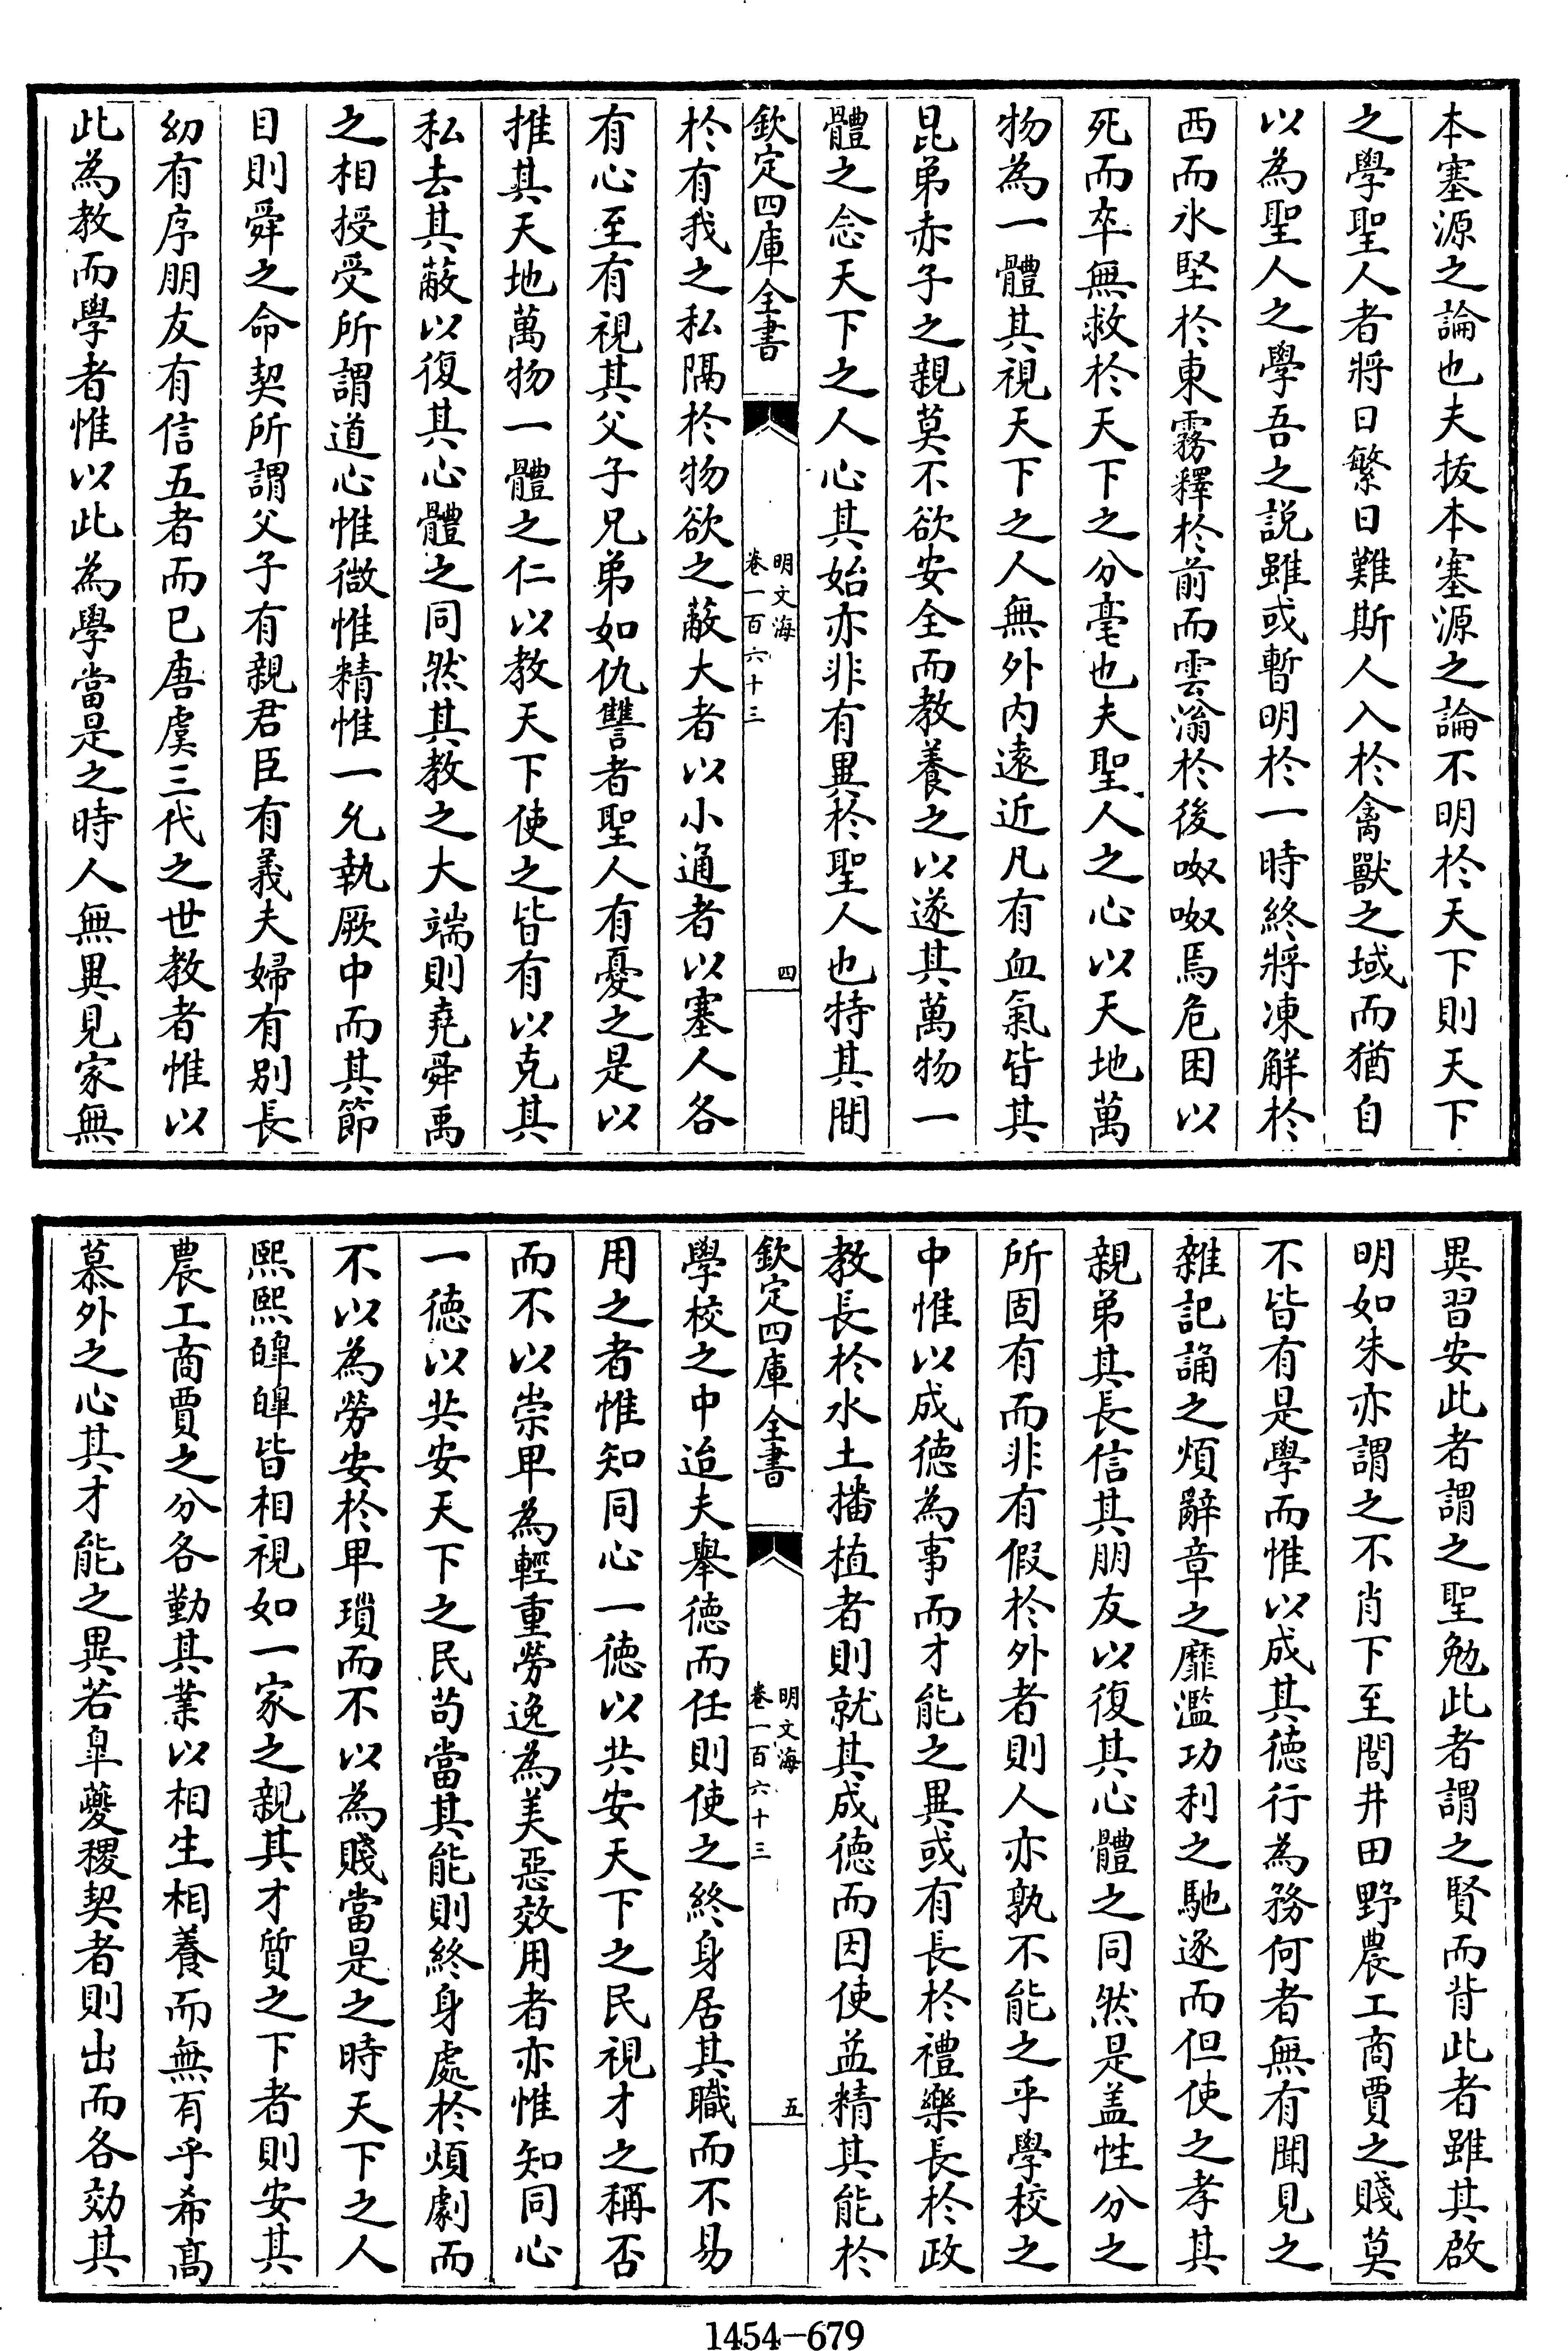 本塞源之論也夫拔本塞源之論不明於天下則天下
之學聖人者將日繁日難斯人入於禽獸之域而猶自
以為聖人之學吾之説雖或暫明於一時終將凍解於
西而氷堅於東霧釋於前而雲滃於後呶呶焉危困以
死而卒無救於天下之分毫也夫聖人之心以天地萬
物為一體其視天下之人無外内逺近凡有血氣皆其
昆弟赤子之親莫不欲安全而教養之以遂其萬物一
體之念天下之人心其始亦非有異於聖人也特其間
欽定四庫全書
明文海
卷一百六十三
四
於有我之私隔於物欲之蔽大者以小通者以塞人各
有心至有視其父子兄弟如仇讐者聖人有憂之是以
推其天地萬物一體之仁以教天下使之皆有以克其
私去其蔽以復其心體之同然其教之大端則堯舜禹
之相授受所謂道心惟微惟精惟一允執厥中而其節
目則舜之命契所謂父子有親君臣有義夫婦有别長
幼有序朋友有信五者而已唐虞三代之世教者惟以
此為教而學者惟以此為學當是之時人無異見家無
異習安此者謂之聖勉此者謂之賢而背此者雖其啟
明如朱亦謂之不肖下至閭井田野農工商賈之賤莫
不皆有是學而惟以成其德行為務何者無有聞見之
雜記誦之煩辭章之靡濫功利之馳逐而但使之孝其
親弟其長信其朋友以復其心體之同然是盖性分之
所固有而非有假於外者則人亦孰不能之乎學校之
中惟以成德為事而才能之異或有長於禮樂長於政
教長於水土播植者則就其成德而因使益精其能於
欽定四庫全書
明文海
卷一百六十三
五
學校之中迨夫舉德而任則使之終身居其職而不易
用之者惟知同心一德以共安天下之民視才之稱否
而不以崇卑為輕重勞逸為美惡效用者亦惟知同心
一德以共安天下之民苟當其能則終身處於煩劇而
不以為勞安於卑瑣而不以為賤當是之時天下之人
熙熙皥皥皆相視如一家之親其才質之下者則安其
農工商賈之分各勤其業以相生相養而無有乎希髙
慕外之心其才能之異若臯夔稷契者則出而各効其
1454-679